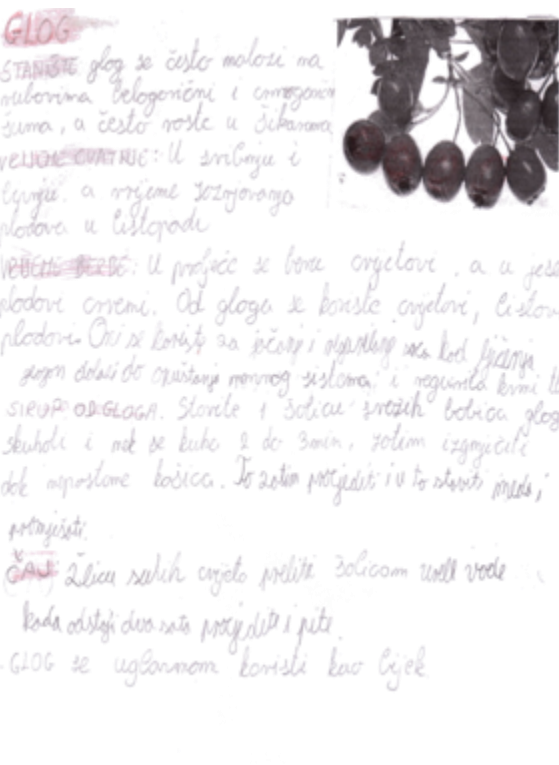 GLOG
STANIŠTE glog se često nalazi na
rubovima belogorični i crnogorični
šuma, a često raste u šikarama
VRIJEME CVATNJE: U svibnju i
lipnju, a vrijeme sozrjevanja
plodova u listopadu
VRIJEME BERBE: U proljeće se beru cvjetovi, a u jese
plodovi crveni. Od gloga se koriste cvjetovi, listovi
plodovi. Oni se koriste za jačanje i kod liječenja
dolazi do opuštanja nervnog sistema, i regulira krvni
SIRUP OD GLOGA. Stavite 1 šolicu svežih bobica glog
skuhati i nek se kuha 2 do 3min, zatim izgnječiti
dok nepostane kašica. To zatim procjediti i u to staviti meda i
promješati.
ČAJ: Žlicu suhih cvjeta prelite šolicom vrele vode
kada odstoji dva sata procjedite i pite.
GLOG se uglavnom koristi kao lijek